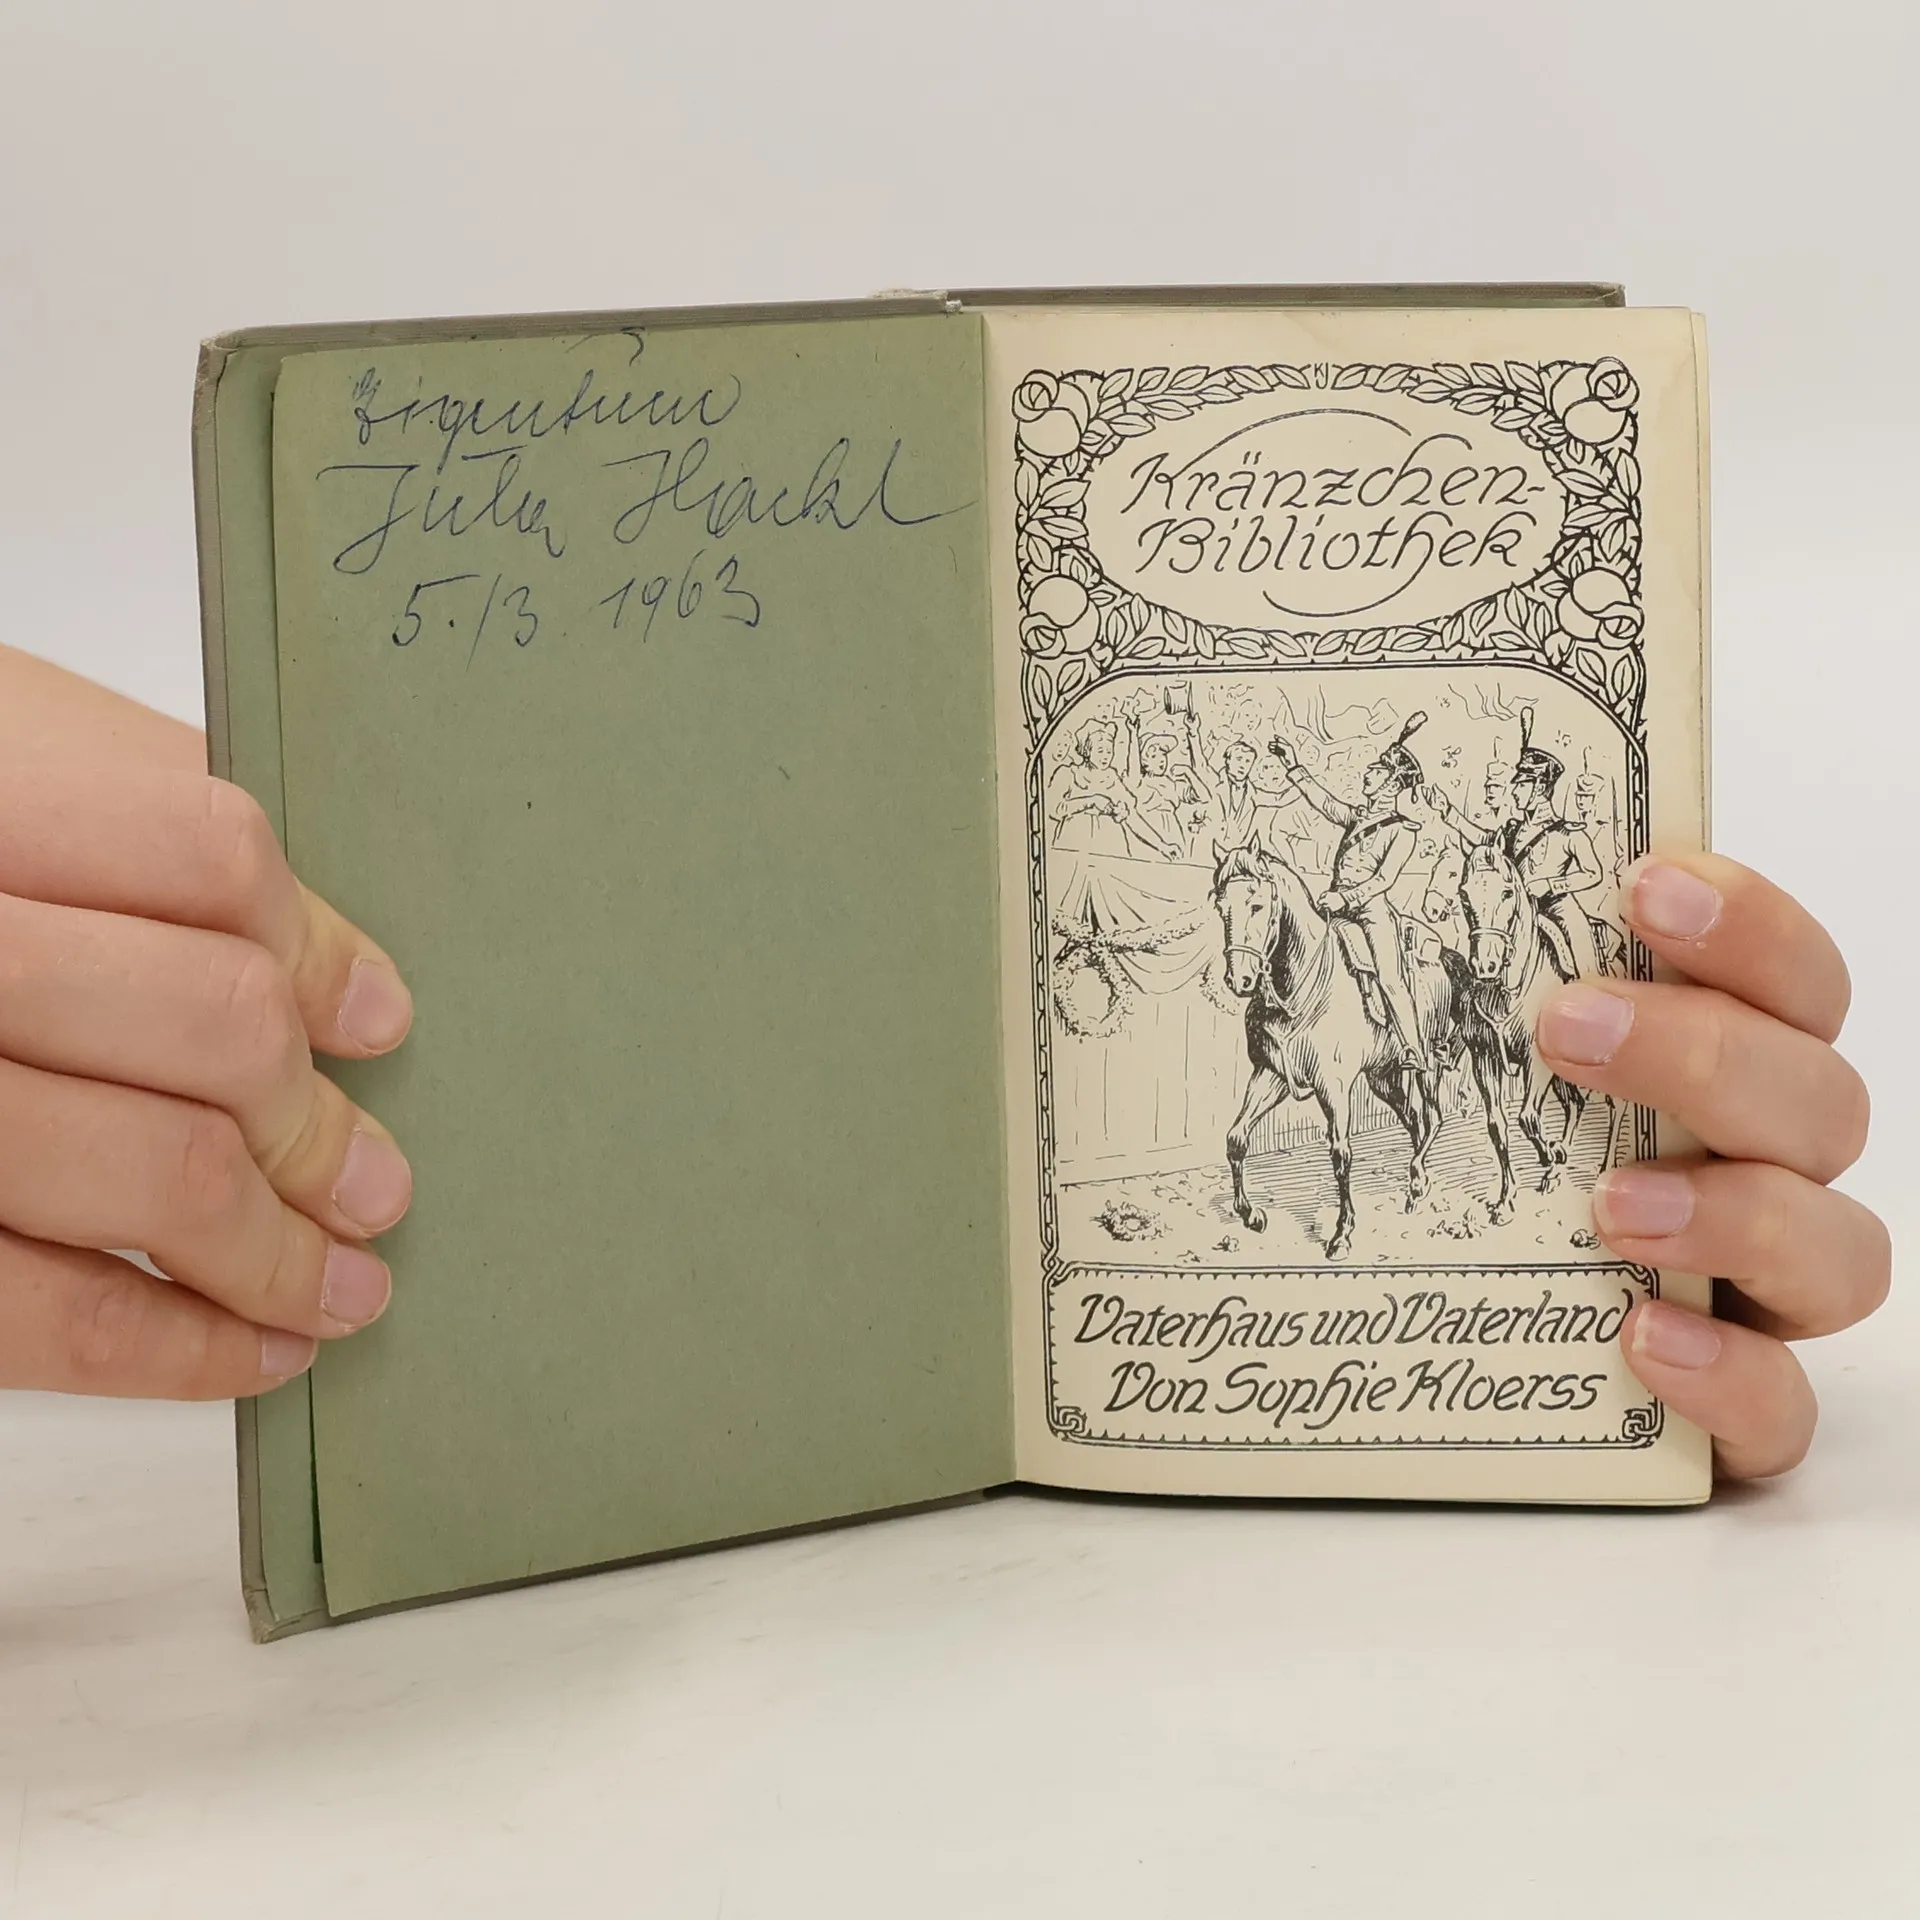 Eigentum
Julia Hackl
5./3. 1963
Kränzchen-
Bibliothek
Vaterhaus und Vaterland
Von Sophie Kloerss